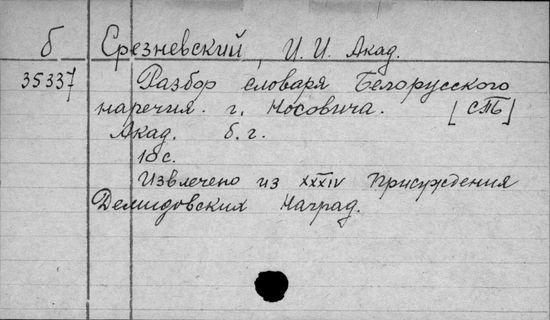 б Срезневский, И. И. Акад.
35337 Разбор словаря Белорусского
наречия. г. Носовича. [СПБ]
Акад. б. г.
10 с.
Извлечено из XXXIV Присуждения
Демидовских Наград.